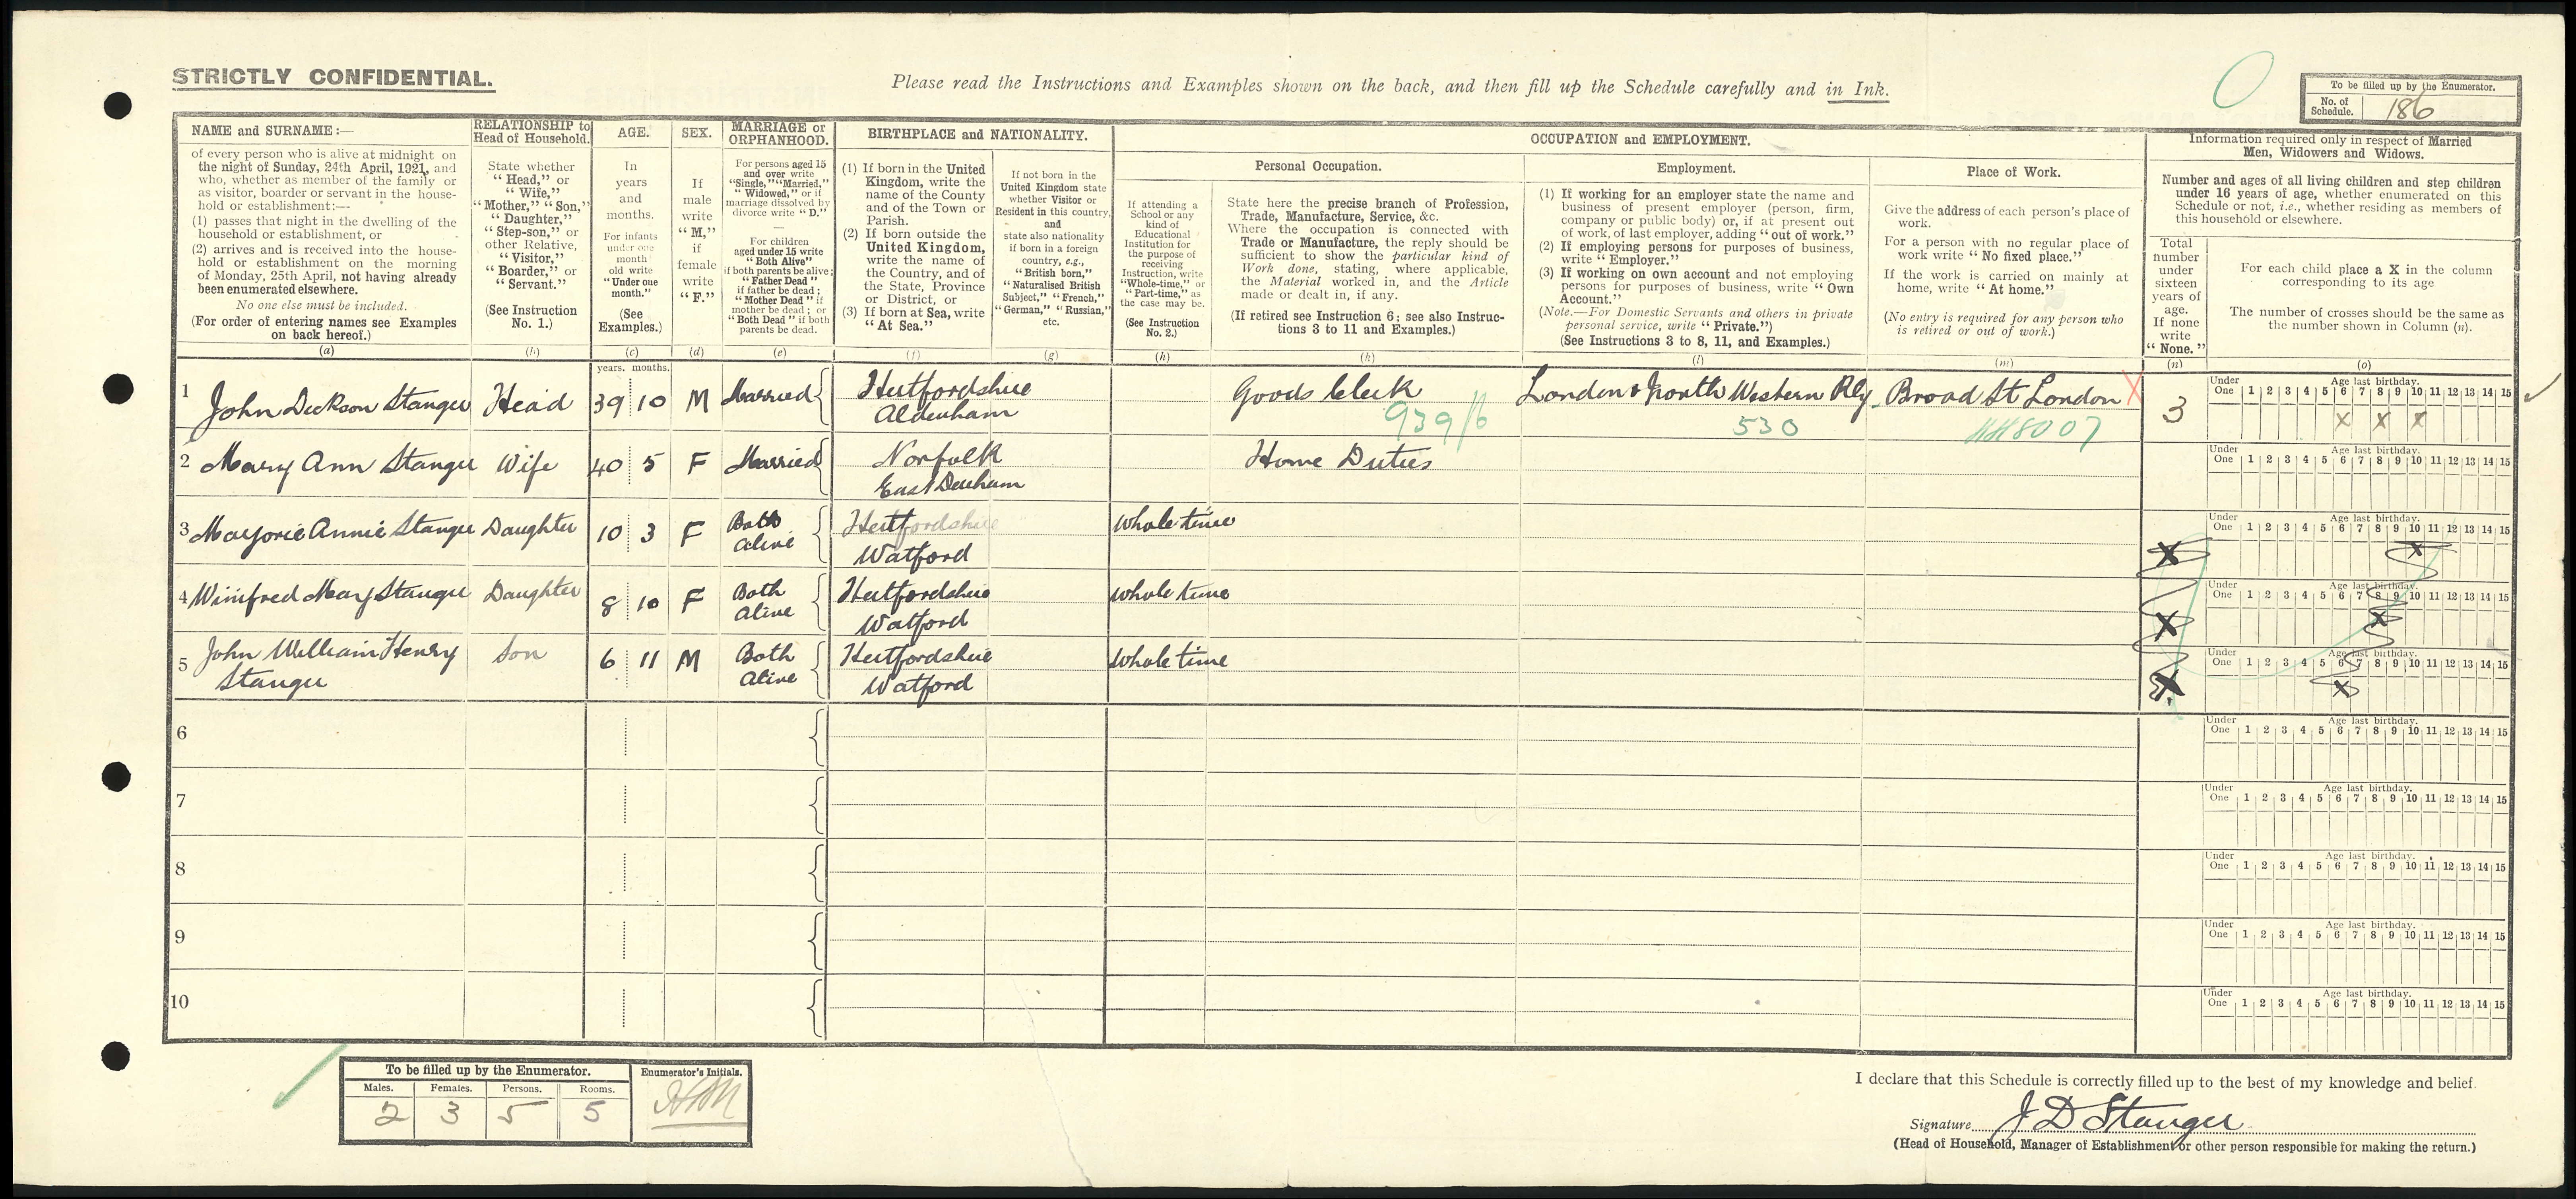 STRICTLY CONFIDENTIAL.
Please read the Instructions and Examples shown on the back, and then fill up the Schedule carefully and in Ink.
To be filled up by the Enumerator.
No. of Schedule. 186
NAME and SURNAME:—
of every person who is alive at midnight on
the night of Sunday, 24th April, 1921, and
who, whether as member of the family or
as visitor, boarder or servant in the house-
hold or establishment:—
(1) passes that night in the dwelling of the
household or establishment, or
(2) arrives and is received into the house-
hold or establishment on the morning
of Monday, 25th April, not having already
been enumerated elsewhere.
No one else must be included.
(For order of entering names see Examples
on back hereof.)
(a)
RELATIONSHIP to
Head of Household.
State whether
"Head," or
"Wife,"
"Mother," "Son,"
"Daughter,"
"Step-son," or
other Relative,
"Visitor,"
"Boarder," or
"Servant."
(See Instruction
No. 1.)
(b)
AGE.
In
years
and
months.
For infants
under one
month
old write
"Under one
month."
(See
Examples.)
(c)
SEX.
If
male
write
"M,"
if
female
write
"F."
(d)
MARRIAGE or
ORPHANHOOD.
For persons aged 15
and over write
"Single," "Married,"
"Widowed," or if
marriage dissolved by
divorce write "D."
For children
aged under 15 write
"Both Alive"
if both parents be alive;
"Father Dead"
if father be dead;
"Mother Dead" if
mother be dead; or
"Both Dead" if both
parents be dead.
(e)
BIRTHPLACE and NATIONALITY.
(1) If born in the United
Kingdom, write the
name of the County
and of the Town or
Parish.
(2) If born outside the
United Kingdom,
write the name of
the Country, and of
the State, Province
or District, or
(3) If born at Sea, write
"At Sea."
(f)
If not born in the
United Kingdom state
whether Visitor or
Resident in this country,
and
state also nationality
if born in a foreign
country, e.g.,
"British born,"
"Naturalised British
Subject," "French,"
"German," "Russian,"
etc.
(g)
OCCUPATION and EMPLOYMENT.
If attending a
School or any
kind of
Educational
Institution for
the purpose of
receiving
Instruction, write
"Whole-time," or
"Part-time," as
the case may be.
(See Instruction
No. 2.)
(h)
Personal Occupation.
State here the precise branch of Profession,
Trade, Manufacture, Service, &c.
Where the occupation is connected with
Trade or Manufacture, the reply should be
sufficient to show the particular kind of
Work done, stating, where applicable,
the Material worked in, and the Article
made or dealt in, if any.
(If retired see Instruction 6; see also Instruc-
tions 3 to 11 and Examples.)
(k)
Employment.
(1) If working for an employer state the name and
business of present employer (person, firm,
company or public body) or, if at present out
of work, of last employer, adding "out of work."
(2) If employing persons for purposes of business,
write "Employer."
(3) If working on own account and not employing
persons for purposes of business, write "Own
Account."
(Note.—For Domestic Servants and others in private
personal service, write "Private.")
(See Instructions 3 to 8, 11, and Examples.)
(l)
Place of Work.
Give the address of each person's place of
work.
For a person with no regular place of
work write "No fixed place."
If the work is carried on mainly at
home, write "At home."
(No entry is required for any person who
is retired or out of work.)
(m)
Information required only in respect of Married
Men, Widowers and Widows.
Number and ages of all living children and step children
under 16 years of age, whether enumerated on this
Schedule or not, i.e., whether residing as members of
this household or elsewhere.
Total
number
under
sixteen
years of
age.
If none
write
"None."
(n)
For each child place a X in the column
corresponding to its age
The number of crosses should be the same as
the number shown in Column (n).
(o)
years. months.
1 John Dickson Stanger Head 39 10 M Married Hertfordshire Aldenham Goods Clerk London & North Western Rly. Broad St London X 3
939/6 530
Under One Age last birthday. 1 2 3 4 5 6 7 8 9 10 11 12 13 14 15
X X X
2 Mary Ann Stanger Wife 40 5 F Married Norfolk East Dereham Home Duties
Under One Age last birthday. 1 2 3 4 5 6 7 8 9 10 11 12 13 14 15
3 Marjorie Annie Stanger Daughter 10 3 F Both Alive Hertfordshire Watford Whole time X
Under One Age last birthday. 1 2 3 4 5 6 7 8 9 10 11 12 13 14 15
X
4 Winifred Mary Stanger Daughter 8 10 F Both Alive Hertfordshire Watford Whole time X
Under One Age last birthday. 1 2 3 4 5 6 7 8 9 10 11 12 13 14 15
X
5 John William Henry Stanger Son 6 11 M Both Alive Hertfordshire Watford Whole time X
Under One Age last birthday. 1 2 3 4 5 6 7 8 9 10 11 12 13 14 15
X
6
Under One Age last birthday. 1 2 3 4 5 6 7 8 9 10 11 12 13 14 15
7
Under One Age last birthday. 1 2 3 4 5 6 7 8 9 10 11 12 13 14 15
8
Under One Age last birthday. 1 2 3 4 5 6 7 8 9 10 11 12 13 14 15
9
Under One Age last birthday. 1 2 3 4 5 6 7 8 9 10 11 12 13 14 15
10
Under One Age last birthday. 1 2 3 4 5 6 7 8 9 10 11 12 13 14 15
To be filled up by the Enumerator.
Males. Females. Persons. Rooms.
2 3 5 5
Enumerator's Initials.
I declare that this Schedule is correctly filled up to the best of my knowledge and belief.
Signature J D Stanger
(Head of Household, Manager of Establishment or other person responsible for making the return.)